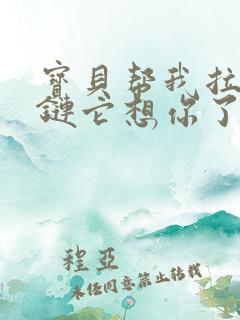 寶貝帮我拉
鏈它想你了
程亞
未经同意禁止转载